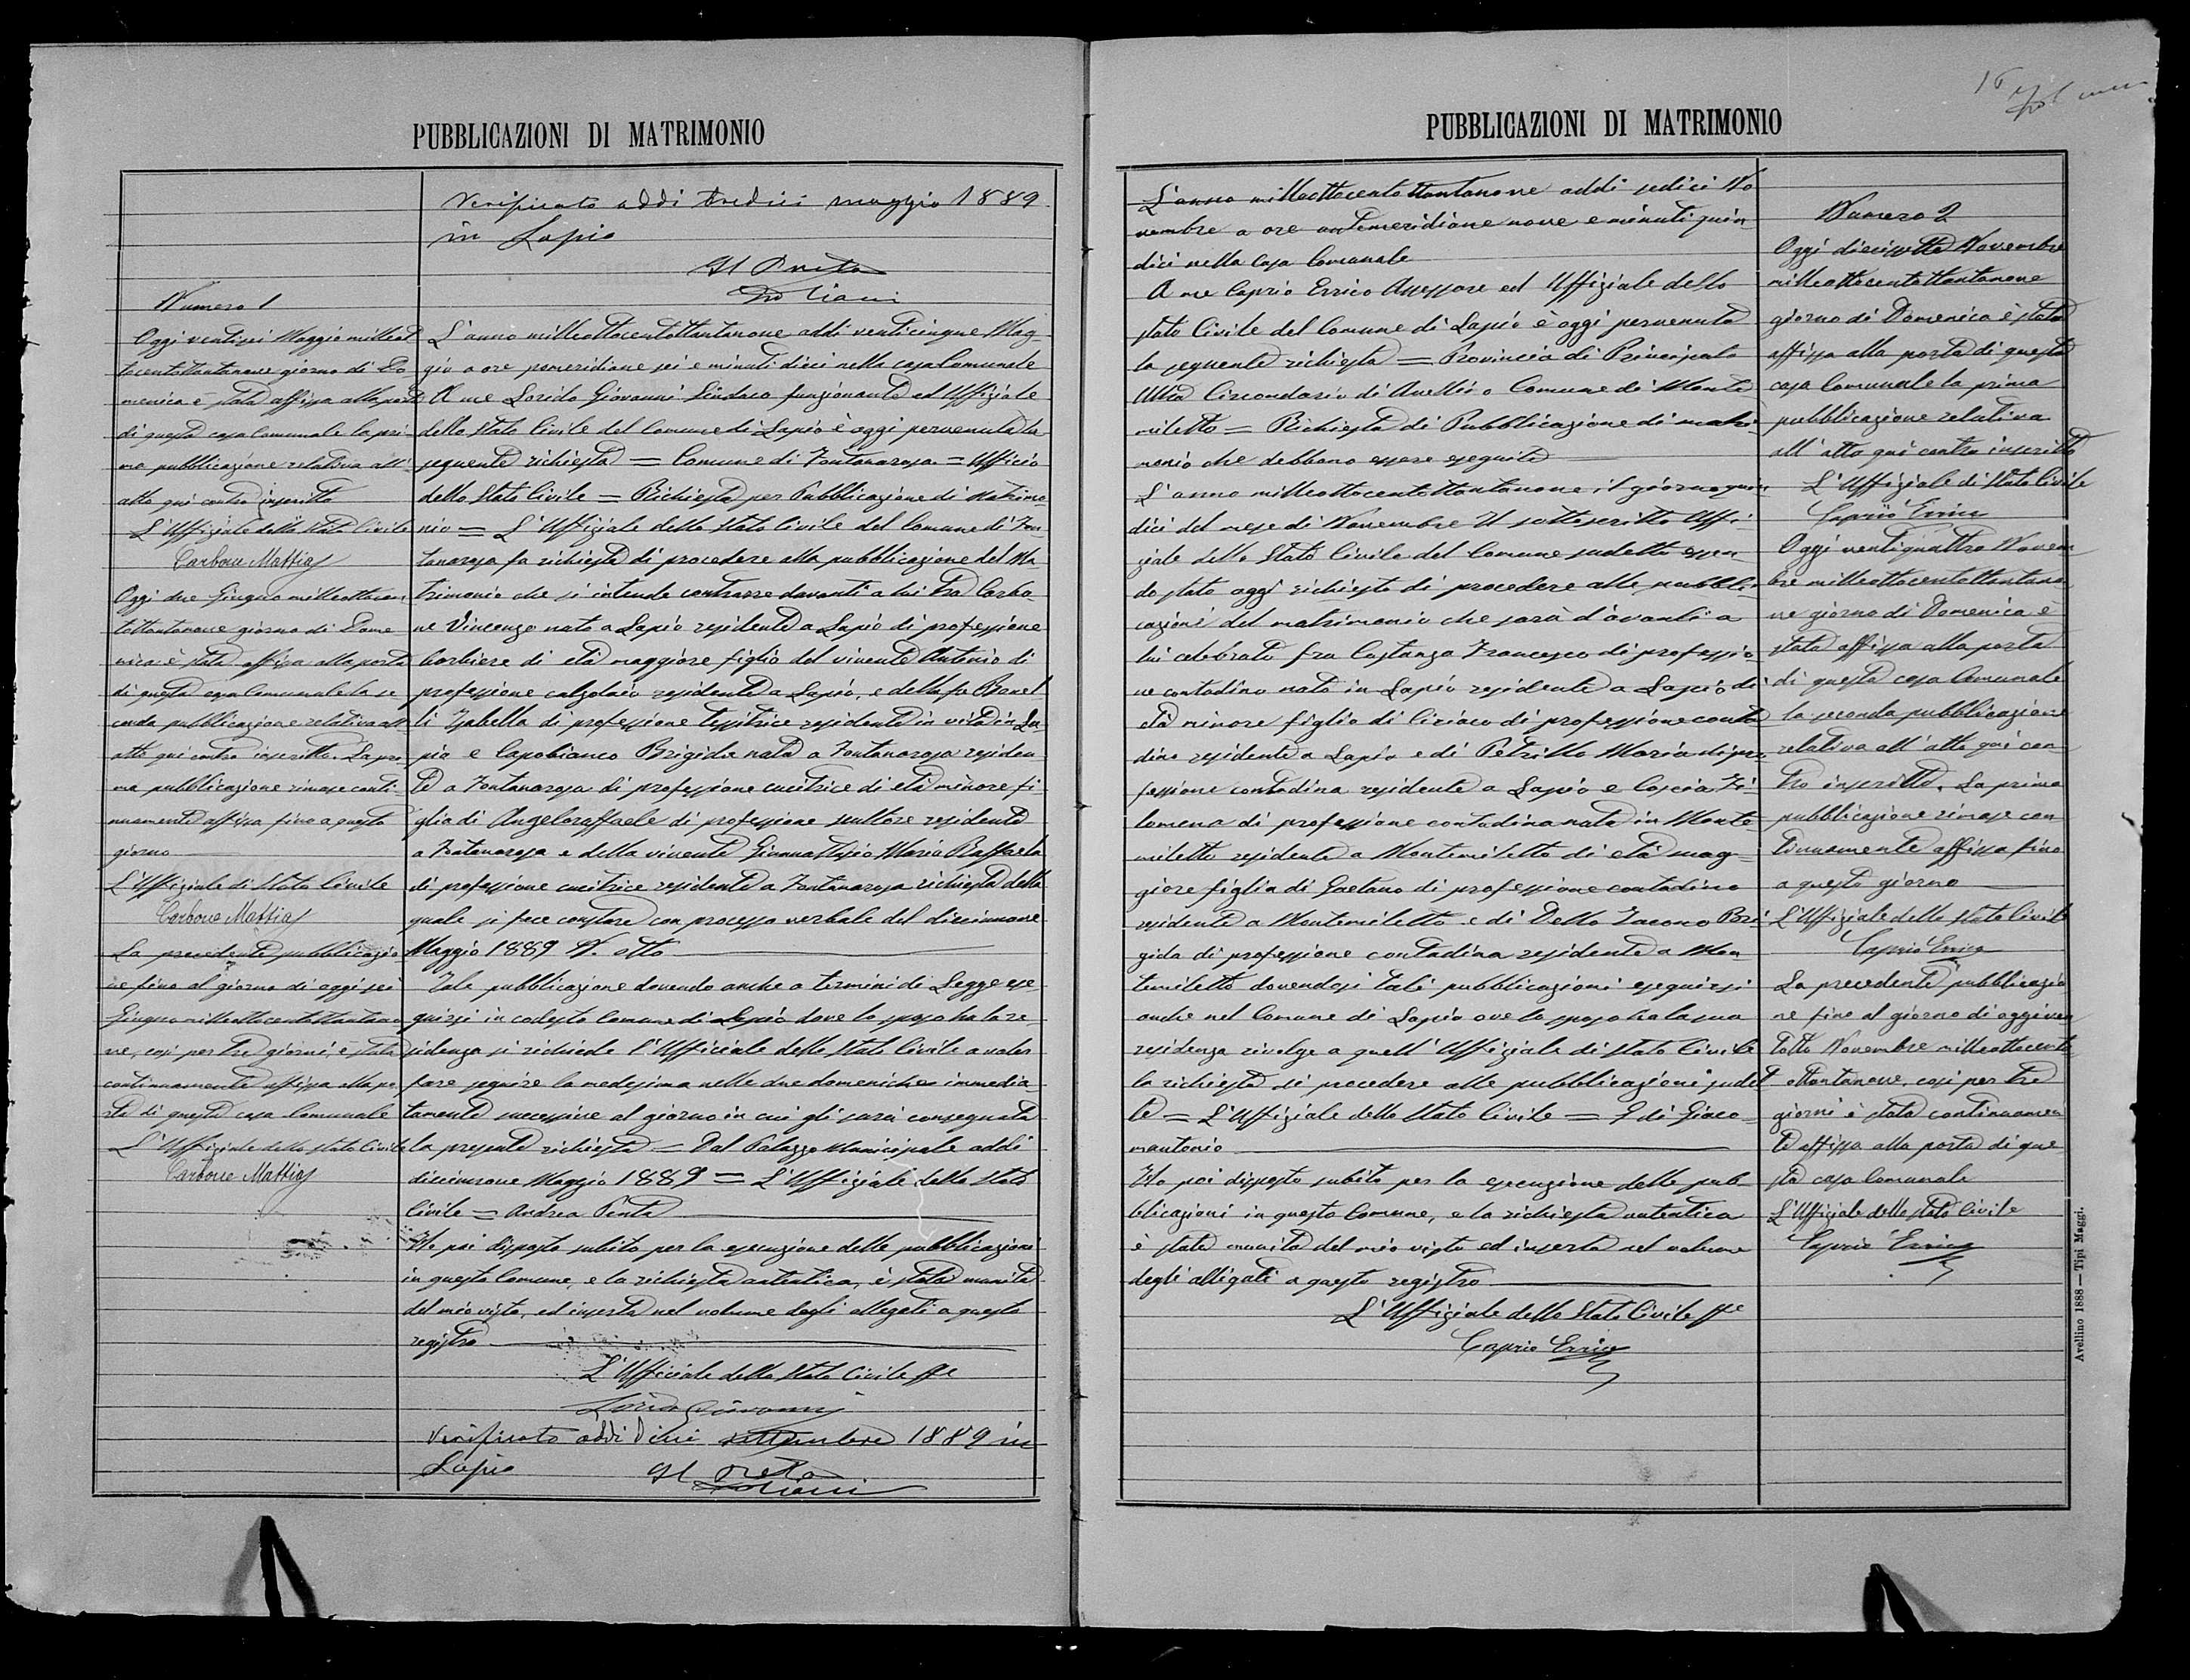 PUBBLICAZIONI DI MATRIMONIO
Verificato addi tredici maggio 1889
in Lapio
Il Pretore
Numero 1
Oggi ventisei Maggio milleot
tocentottantanove giorno di Do
menica è stata affissa alla porta
di questa casa Comunale la pri-
ma pubblicazione relativa all'
atto qui contro inscritto
L'Uffiziale dello Stato Civile
Carbone Mattia
Oggi due Giugno milleottocen
tottantanove giorno di Dome
nica è stata affissa alla porta
di questa casa Comunale la se
conda pubblicazione relativa all'
atto qui contro inscritto. La pri
ma pubblicazione rimase conti-
nuamente affissa fino a questo
giorno
L'Uffiziale di Stato Civile
Carbone Mattia
La precedente pubblicazio
ne fino al giorno di oggi sei
Giugno milleottocentottantano
ve, così per tre giorni, è stata
continuamente affissa alla po
rta di questa casa Comunale
L'Uffiziale dello Stato Civile
Carbone Mattia
L'anno milleottocentottantanove addi venticinque Mag-
gio a ore pomeridiane sei e minuti dieci nella casa Comunale
A me Lorido Giovanni Sindaco funzionante ed Uffiziale
dello Stato Civile del Comune di Lapio è oggi pervenuta la
seguente richiesta = Comune di Fontanarosa = Ufficio
dello Stato Civile = Richiesta per Pubblicazione di Matrimo
nio = L'Uffiziale dello Stato Civile del Comune di Fon
tanarosa fa richiesta di procedere alla pubblicazione del Ma
trimonio che si intende contrarre davanti a lui tra Carbo
ne Vincenzo nato a Lapio residente a Lapio di professione
barbiere di età maggiore figlio del vivente Antonio di
professione calzolaio residente a Lapio, e della fu Bonel
li Isabella di professione tessitrice residente in vita in La
pio e Capobianco Brigida nata a Fontanarosa residen
te a Fontanarosa di professione cucitrice di età minore fi
glia di Angeloraffaele di professione scultore residente
a Fontanarosa e della vivente Maria Raffaela
di professione cucitrice residente a Fontanarosa richiesta della
quale si fece constare con processo verbale del diciannove
Maggio 1889 N. otto
Tale pubblicazione dovendo anche a termini di Legge ese
guirsi in codesto Comune di Lapio dove lo sposo ha la re
sidenza si richiede l'Ufficiale dello Stato Civile a voler
fare seguire la medesima nelle due domeniche immedia
tamente successive al giorno in cui gli sarà consegnata
la presente richiesta = Dal Palazzo Municipale addi
diciannove Maggio 1889 = L'Uffiziale dello Stato
Civile = Andrea Penta
Ho poi disposto subito per la esecuzione delle pubblicazioni
in questo Comune, e la richiesta autentica, è stata munita
del mio visto, ed inserta nel volume degli allegati a questo
registro
L'Ufficiale dello Stato Civile ffe
Lorido Giovanni
Verificato addi Dieci settembre 1889 in
Lapio Il Pretore
PUBBLICAZIONI DI MATRIMONIO
L'anno milleottocentottantanove addi sedici No
vembre a ore antimeridiane nove e minuti quin
dici nella casa Comunale
A me Caprio Errico Assessore ed Uffiziale dello
Stato Civile del Comune di Lapio è oggi pervenuta
la seguente richiesta = Provincia di Principato
Ultra Circondario di Avellino Comune di Monte
miletto = Richiesta di Pubblicazione di matri
monio che debbono essere eseguite
L'anno milleottocentottantanove il giorno quin
dici del mese di Novembre Il sottoscritto Uffi
ziale dello Stato Civile del Comune sudetto essen
do stato oggi richiesto di procedere alle pubbli
cazioni del matrimonio che sarà d'avanti a
lui celebrato fra Costanza Francesco di professio
ne contadino nato in Lapio residente a Lapio di
età minore figlio di Ciriaco di professione conta
dino residente a Lapio e di Petrillo Maria di pro
fessione contadina residente a Lapio e Coscia Fi
lomena di professione contadina nata in Monte
miletto residente a Montemiletto di età mag
giore figlia di Gaetano di professione contadino
residente a Montemiletto e di Dello Iacono Bri
gida di professione contadina residente a Mon
temiletto dovendosi tali pubblicazioni eseguirsi
anche nel Comune di Lapio ove lo sposo ha la sua
residenza rivolge a quell'Uffiziale di Stato Civile
la richiesta di procedere alle pubblicazioni sudet
te = L'Uffiziale dello Stato Civile = F di Giaco
mantonio
Ho poi disposto subito per la esecuzione delle pub-
blicazioni in questo Comune, e la richiesta autentica
è stata munita del mio visto ed inserta nel volume
degli alligati a questo registro
L'Uffiziale dello Stato Civile ffe
Caprio Errico
Numero 2
Oggi diciessette Novembre
milleottocentottantanove
giorno di Domenica è stata
affissa alla porta di questa
casa Comunale la prima
pubblicazione relativa
all'atto qui contro inscritto
L'Uffiziale di Stato Civile
Caprio Errico
Oggi ventiquattro Novem
bre milleottocentottantano
ve giorno di Domenica è
stata affissa alla porta
di questa casa Comunale
la seconda pubblicazione
relativa all'atto qui con
tro inscritto. La prima
pubblicazione rimase con
tinuamente affissa fino
a questo giorno
L'Uffiziale dello Stato Civile
Caprio Errico
La precedente pubblicazio
ne fino al giorno di oggi ven
totto Novembre milleottocento
ottantanove, così per tre
giorni è stata continuamen
te affissa alla porta di que
sta casa Comunale
L'Uffiziale dello Stato Civile
Caprio Errico
Avellino 1888 — Tipi Maggi.